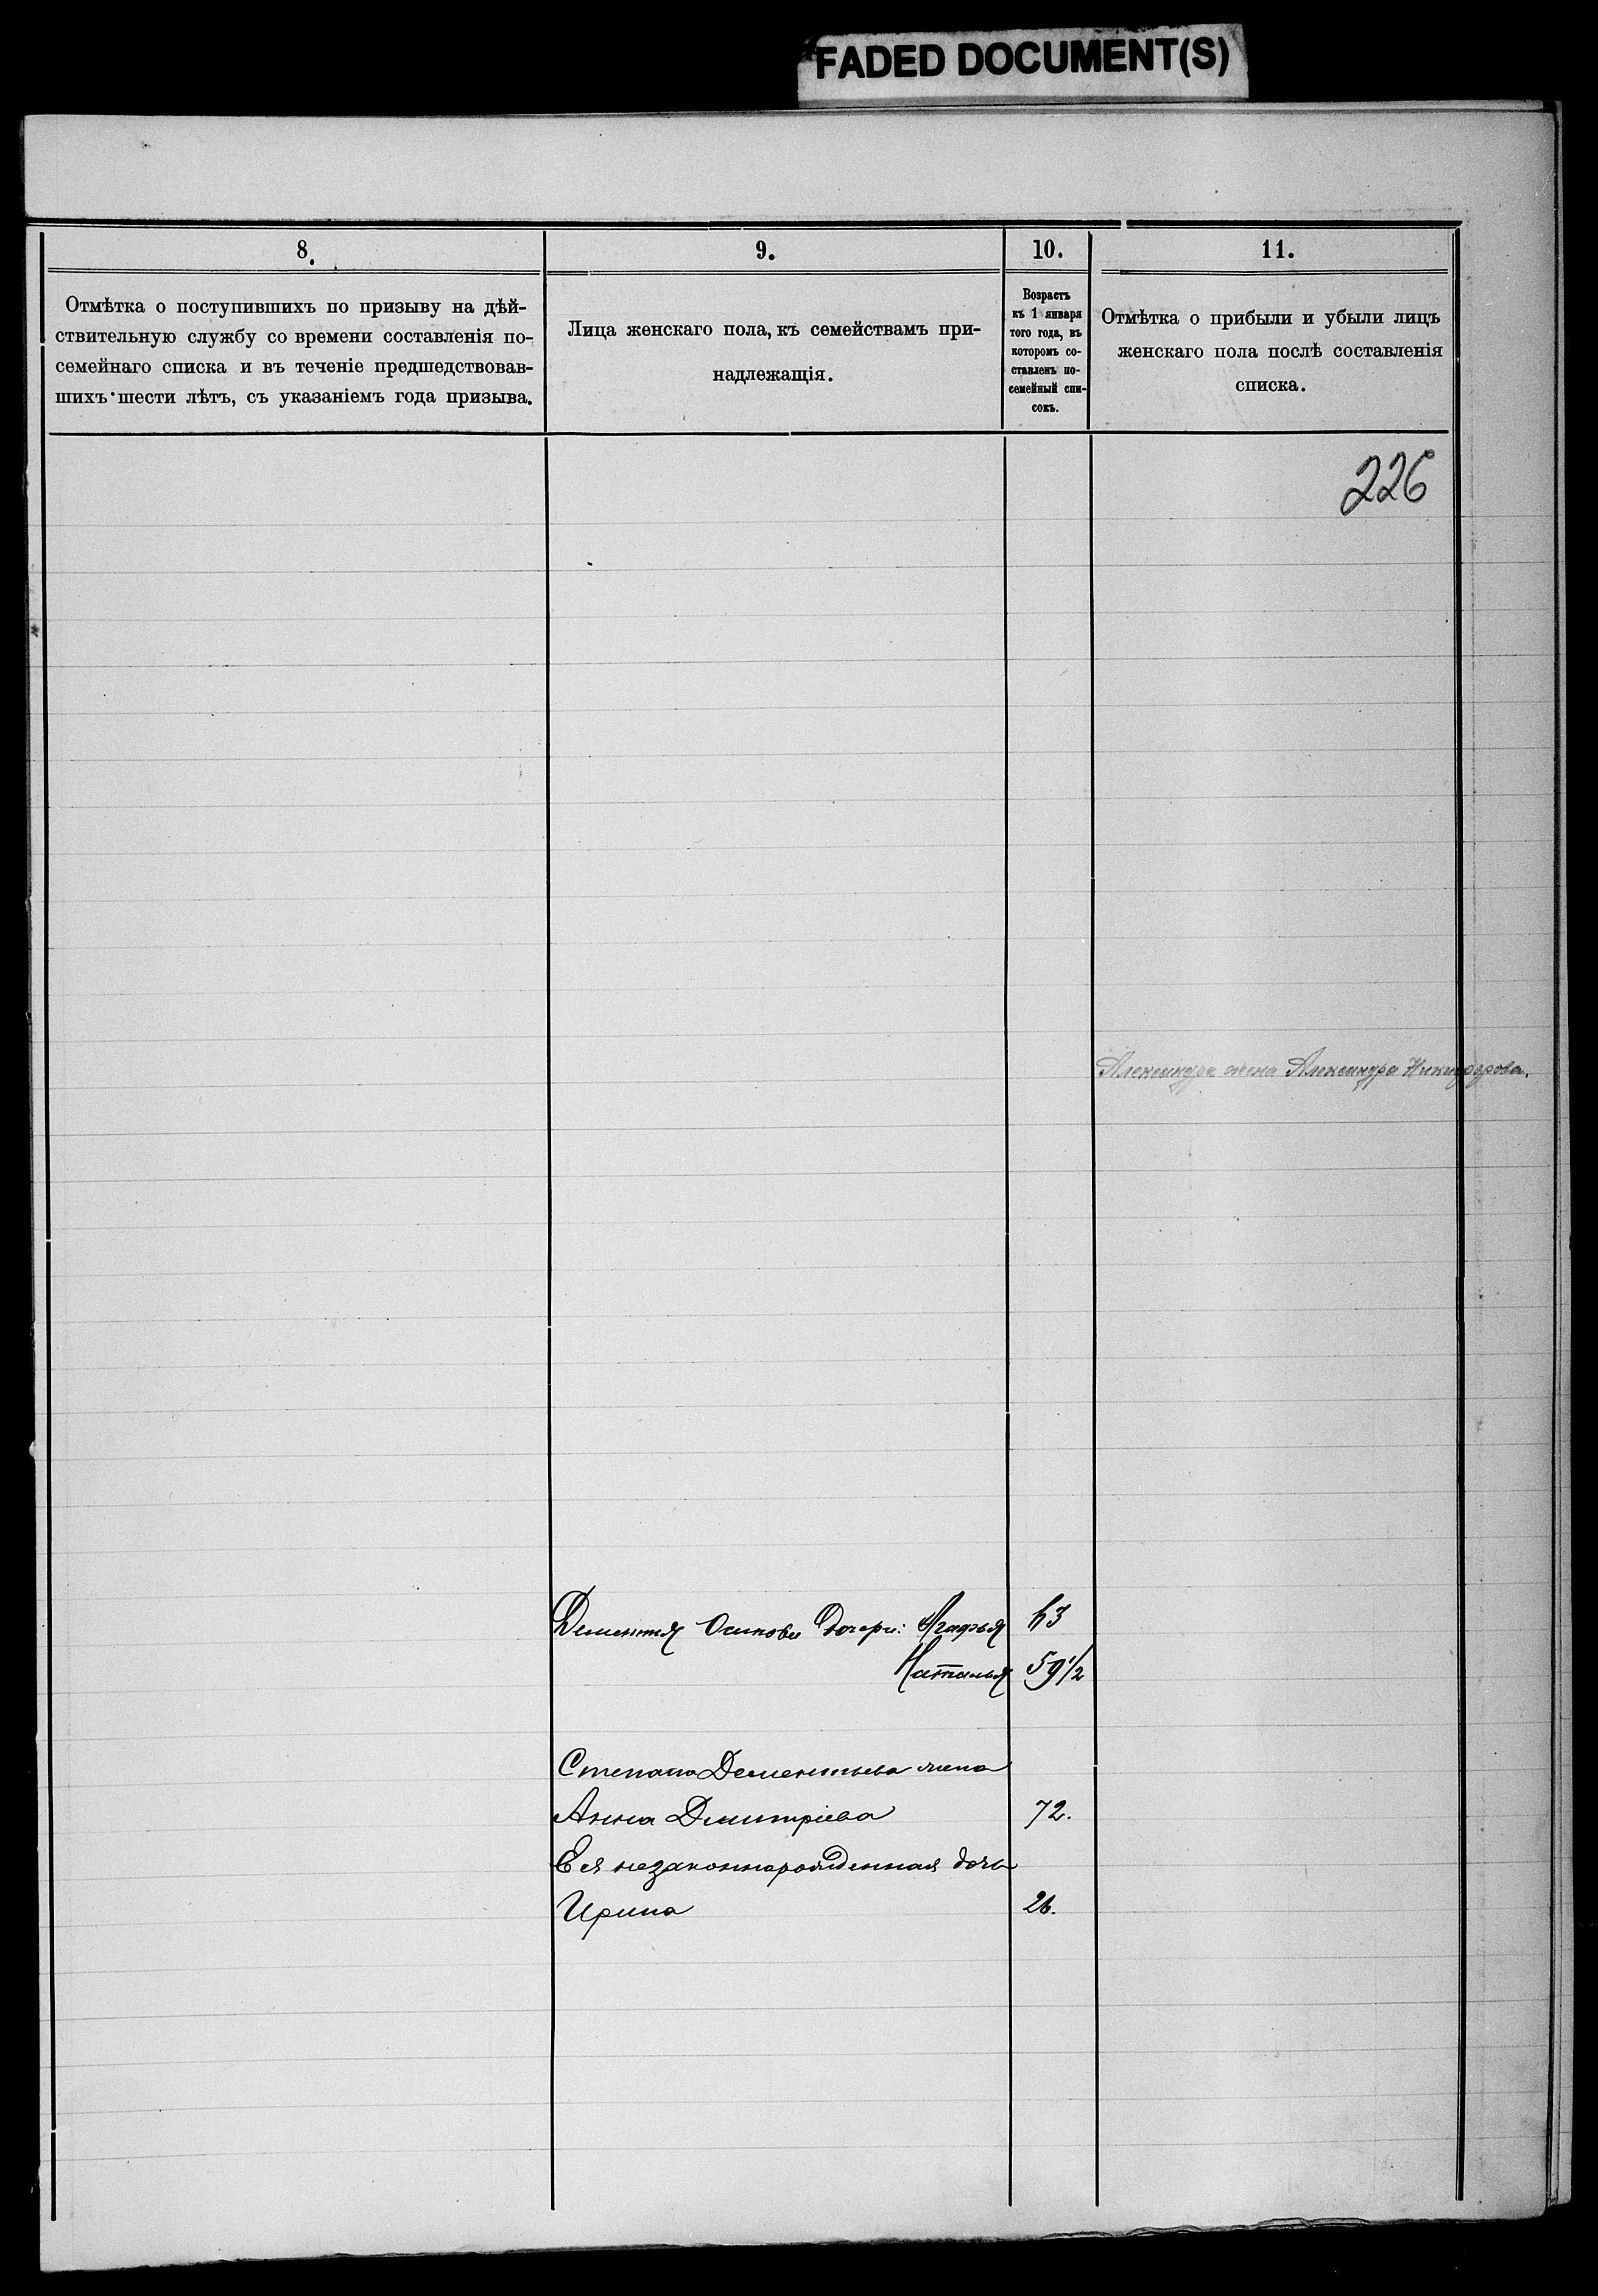 FADED DOCUMENT(S)
8.
Отмѣтка о поступившихъ по призыву на дѣй-
ствительную службу со времени составленія по-
семейнаго списка и въ теченіе предшедствовав-
шихъ шести лѣтъ, съ указаніемъ года призыва.
9.
Лица женскаго пола, къ семействамъ при-
надлежащія.
10.
Возрастъ
къ 1 января
того года, въ
которомъ со-
ставленъ по-
семейный спи-
сокъ.
11.
Отмѣтка о прибыли и убыли лицъ
женскаго пола послѣ составленія
списка.
226
Александра жена Александра Никифорова.
Дементія Осипова дочери: Агафья 63
Наталья 59 1/2
Степана Дементьева жена
Анна Дмитріева 72.
Ея незаконнорожденная дочь
Ирина 26.